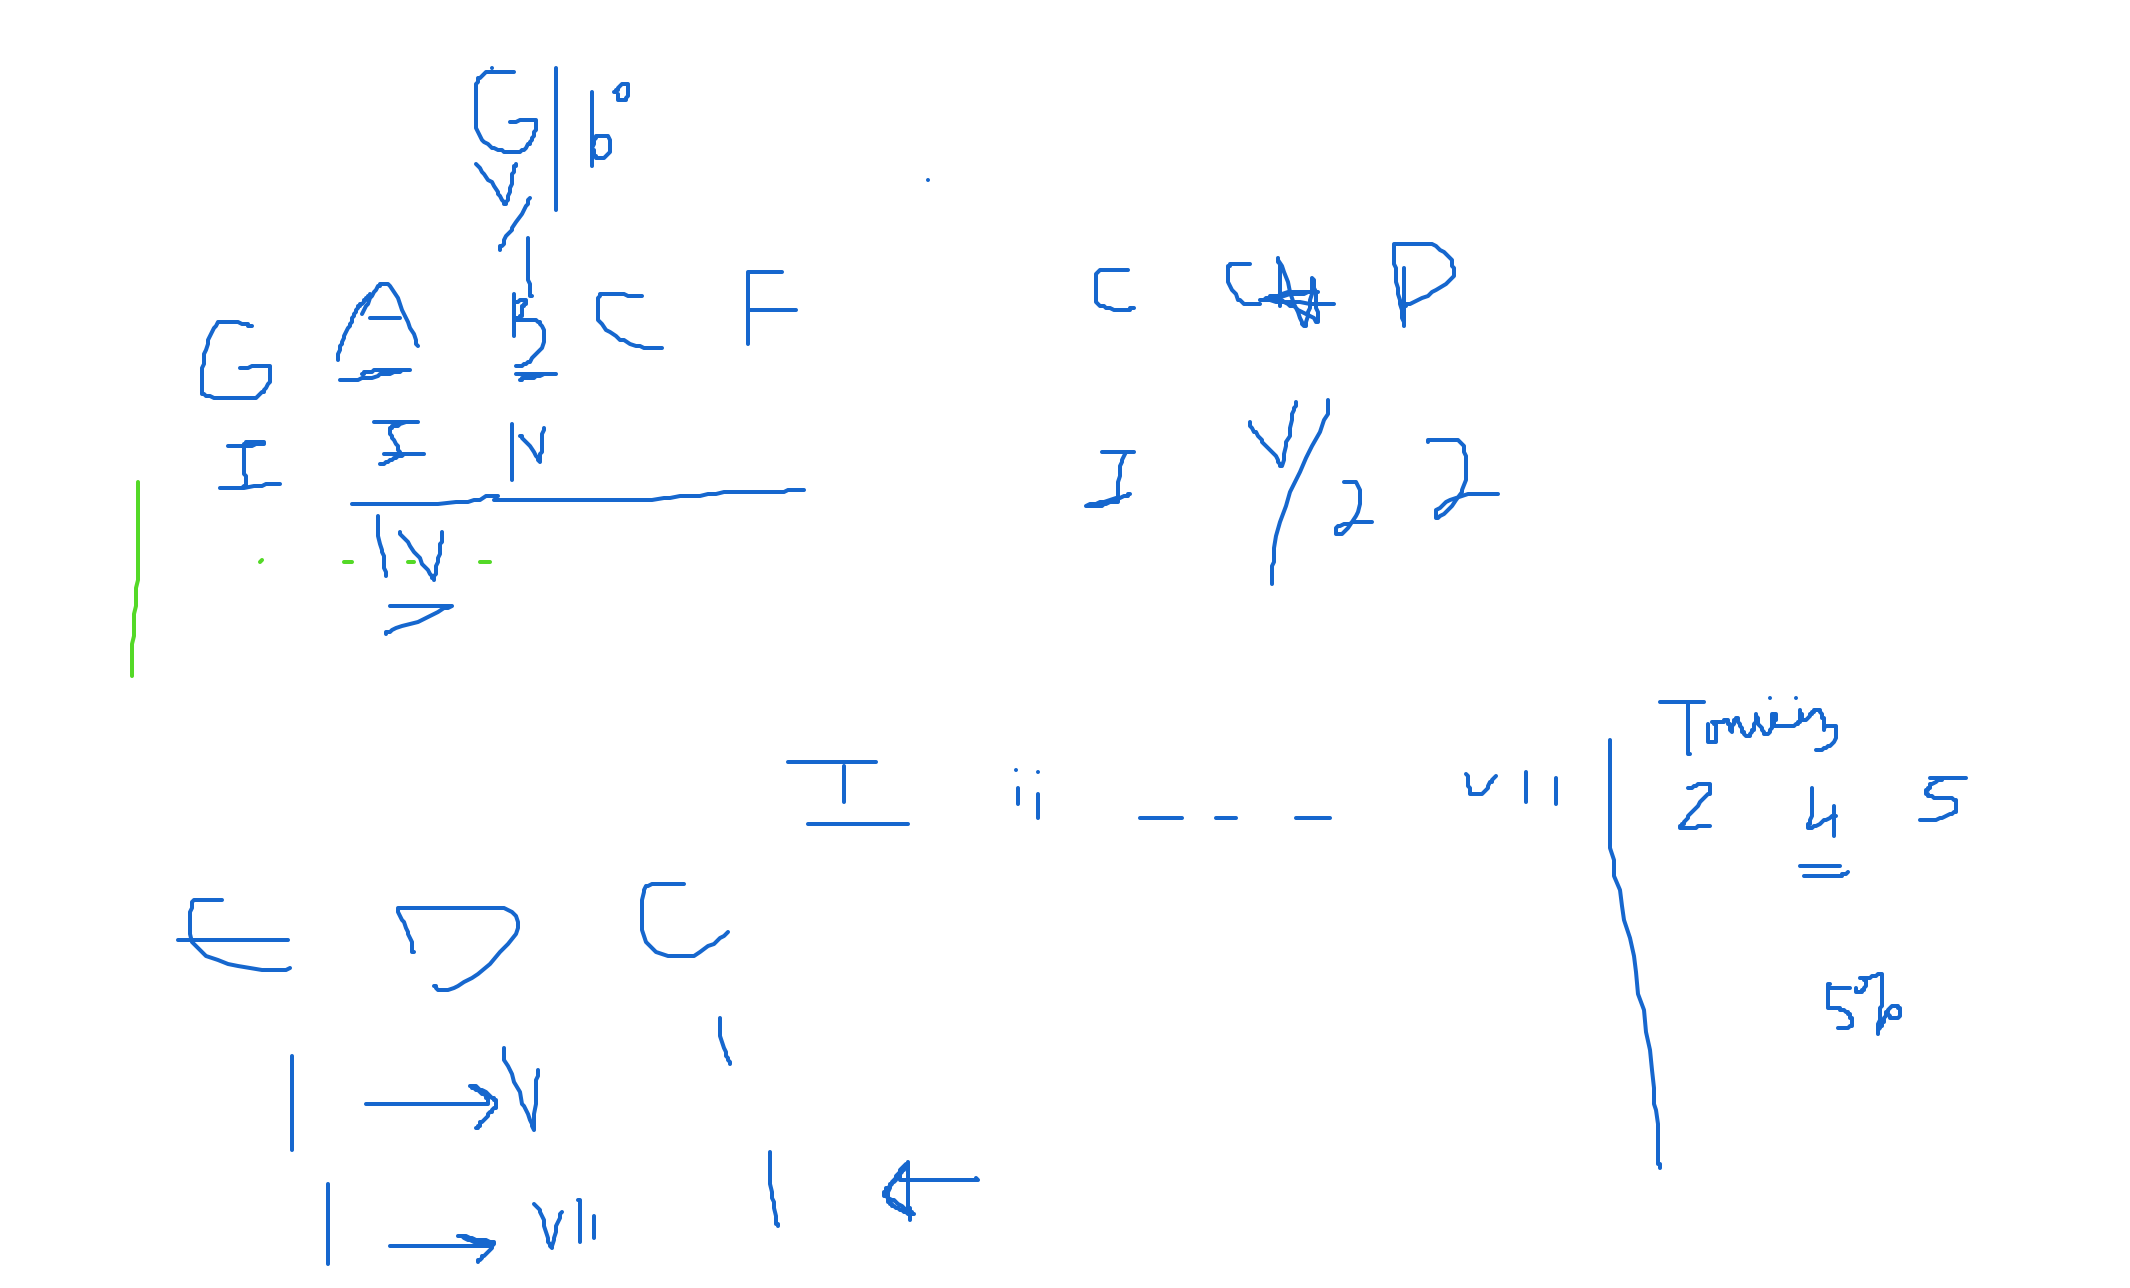 G | b°
V/
G A B C F
I IV
IV
V
C C# D
I V/2 2
I ii _ _ _ vii
2 4 5
5%
E D C
I → V I
I → vii I ←